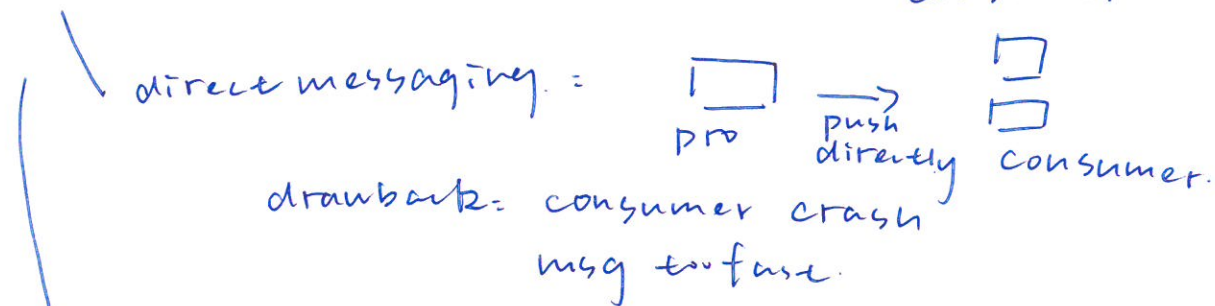 direct messaging :
pro
push
directly
consumer.
drawback: consumer crash
msg too fast.